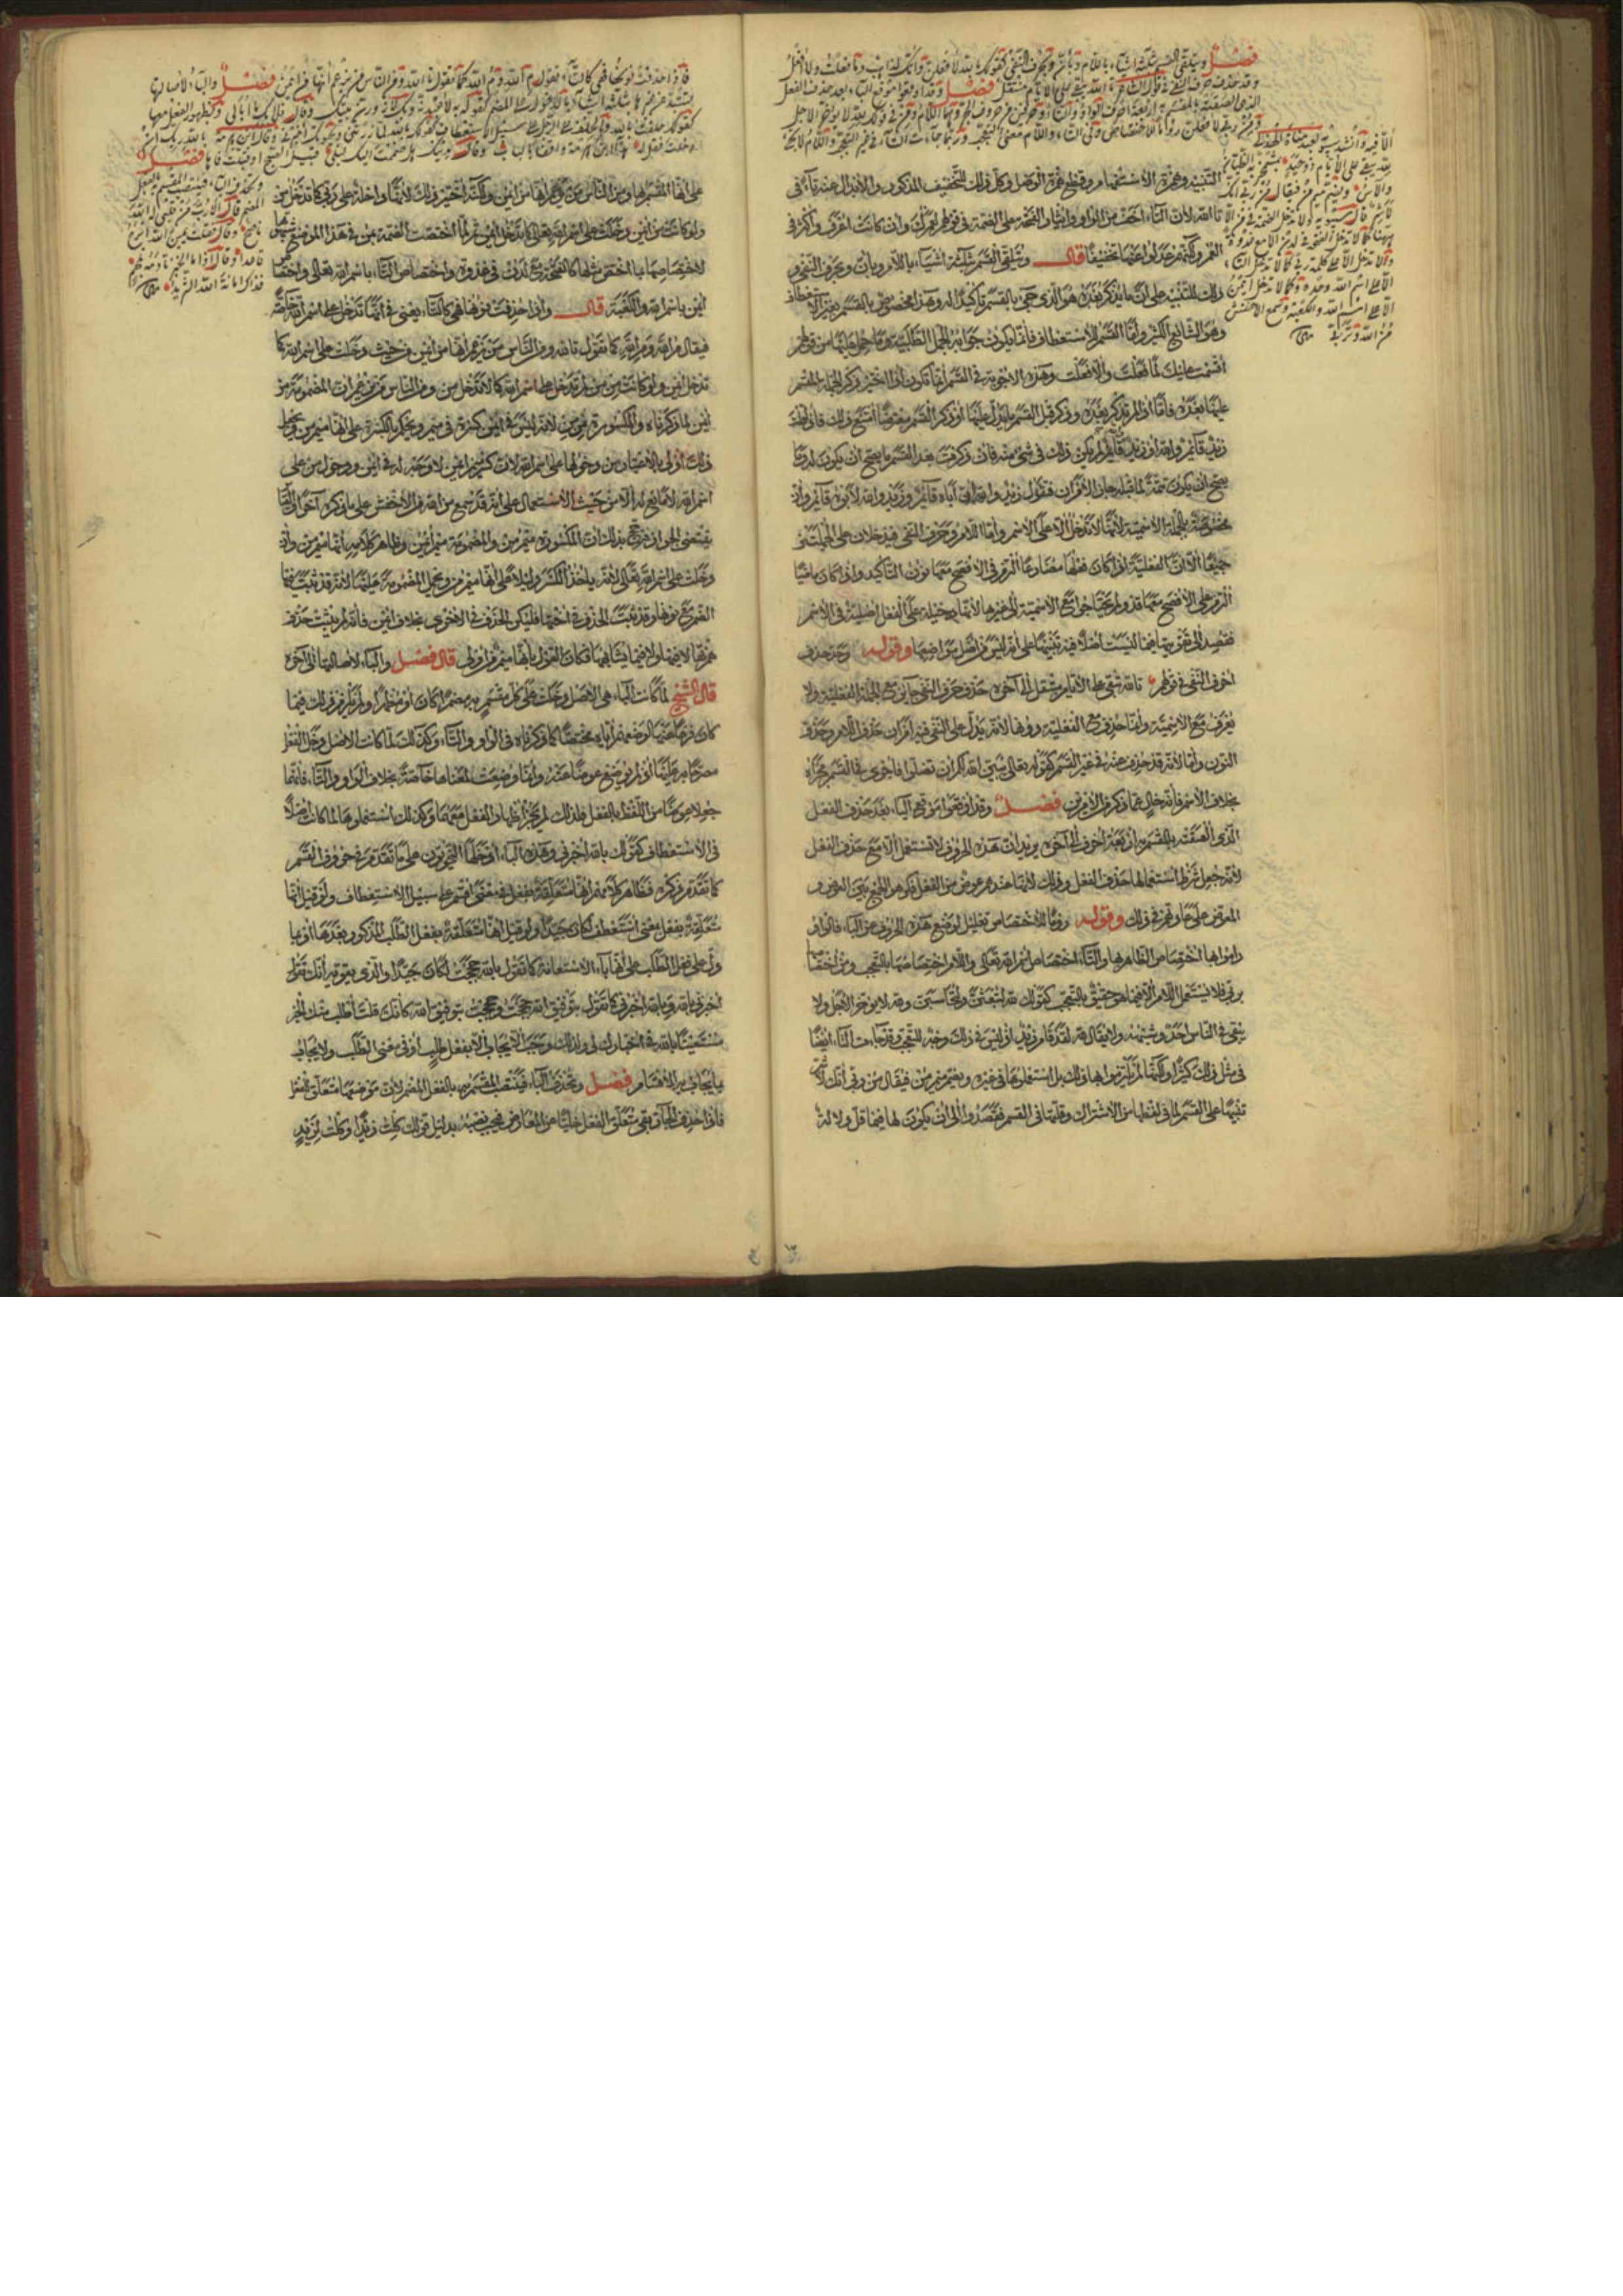 فصل ويتلقى القسم بثلاثة اشياء باللام وبان وبحرف النفي كقولك بالله لافعلن وانك لذاهب وما فعلت ولا افعل
وقد حذف حرف النفي في قول الشاعر تالله يبقى على الايام مبتقل فصل وقد اوقعوا موقع الباء بعد حذف الفعل
الذي الصقته بالمقسم به اربعة احرف الواو والتاء وحرفين من حروف الجر وهما اللام ومن في قولك لله لا يؤخر الاجل
ومن ربي لافعلن روما للاختصاص وفي التاء واللام معنى التعجب وربما جاءت التاء في غير التعجب واللام لا تجئ
الا فيه وانشد سيبويه لعبد مناة الهذلي
لله يبقى على الايام ذو حيد بمشمخر به الظيان
والاس وتضم ميم من فيقال من ربي انك
لاشر قال سيبويه ولا تدخل الضمة في من الا
ههنا كما لا تدخل الفتحة في لدن الا مع غدوة
ولا تدخل الا على كلمة ربي كما لا تدخل التاء
الا على اسم الله وحده وكما لا تدخل ايمن
الا على اسم الله والكعبة وسمع الاخفش
من الله وتربي
التنبيه وهمزة الاستفهام وقطع همزة الوصل وكل ذلك للتخفيف المذكور والابدال عنه تاء في
تالله لان التاء اخف من الواو وايثار الفتحة على الضمة في قولهم لعمرك وان كانت اعرف واكثر في
العمر ولكنهم عدلوا عنها تخفيفا قال ويتلقى القسم بثلثة اشياء باللام وبان وبحرف النفي و
ذلك للتنبيه على ان ما يذكر بعده هو الذي جئ بالقسم تاكيدا له وهذا مخصوص بالقسم بغير الاستعطاف
وهو الشائع الكثير واما القسم للاستعطاف فانما يكون جوابه الجمل الطلبية وما حمل عليها من قولهم
اقسمت عليك لما فعلت والا فعلت وهذه الاجوبة في القسم انما تكون اذا تاخر ذكر الجملة المقسم
عليها بعده فاما اذا لم تذكر بعده وذكر قبل القسم ما يدل عليها او ذكر القسم معترضا امتنع ذلك فاذا قلت
زيد قائم والله او زيد والله قائم لم يكن ذلك في شئ منه فان ذكرت بعد القسم ما يصح ان يكون له وما
يصح ان يكون تتمة لما قبله جاز الامران فتقول زيد والله ان اباه قائم وزيد والله لابوه قائم وان
مخصوصة بالجملة الاسمية لانها لا تدخل الا على الاسم واما اللام وحرف النفي فيدخلان على الجملتين
جميعا الا ان الفعلية اذا كان فعلها مضارعا التزم في الافصح معها نون التاكيد واذا كان ماضيا
التزم على الافصح معها قد ولم يحتاجوا مع الاسمية الى غيرها لانها دخيلة على الفعل اصلية في الاسم
فقصد الى تقويتها فيما ليست اصلا فيه تنبيها على انه ليس من اصل مواضعها وقوله وقد حذف
حرف النفي في قولهم تالله تبقى على الايام مبتقل الى اخره حذف حرف النفي جائز مع الجملة الفعلية ولا
يعرف مع الاسمية وانما حذف مع الفعلية دونها لانه يدل على النفي فيه امران حذف اللام وحذف
النون وايضا لانه قد حذف عنه في غير القسم كقوله تعالى يبين الله لكم ان تضلوا فاجري في القسم مجراه
بخلاف الاسم فانه خال عما ذكر من الامرين فصل وقد اوقعوا موقع الباء بعد حذف الفعل
الذي الصقته بالمقسم به اربعة احرف الى اخره يريد ان هذه الحروف لا تستعمل الا مع حذف الفعل
لانه جعل شرط استعمالها حذف الفعل وذلك لانها عندهم عوض من الفعل فكرهوا الجمع بين العوض و
المعوض على ما في ذلك وقوله روما للاختصاص تعليل لوضع هذه الحروف عن الباء فالواو
راموا بها اختصاص الظاهر بها والتاء اختصاص اسم الله تعالى واللام اختصاصها بالتعجب ومن اختصاصها
بربي فلا يستعمل اللام الا فيما هو حقيق بالتعجب كقولك لله لتبعثن ولتحاسبن ولله لا يؤخر الاجل ولا
يبقى في الناس احد وشبهه ولا يقال لله لقد قام زيد اذ ليس في ذلك وجه للتعجب وقد جاءت التاء ايضا
في مثل ذلك كثيرا ولكنها لم يلتزموا بها ذلك بل استعملوها في غيره وبضم ميم من فيقال من ربي انك لاشر
تنبيها على القسم لما في لفظها من الاشتراك وقلتها في القسم فقصدوا الى ان يكون لها فيما قل دلالة
فاذا حذفت نونها فهي كالتاء تقول م الله وم الله كما تقول تالله ومن الناس من يزعم انها من ايمن فصل والباء لاصالتها
تستبد عن غيرها بثلثة اشياء بالدخول على المضمر كقولك به لاعبدنه وبك لازورن بيتك وقال فلا بك ما ابالي وبظهور الفعل معها
كقولك حلفت بالله وبالحلف على الرجل على سبيل الاستعطاف كقولك بالله لما زرتني وبحياتك اخبرني وقال ابن هرمة بالله ربك ان
دخلت فقل له هذا ابن هرمة واقفا بالباب وقال بدينك هل ضممت اليك ليلى قبيل الصبح او قبلت فاها فصل
وتحذف الباء فينتصب المقسم به بالفعل
المضمر قال الا رب من قلبي له الله
ناصح وقال فقلت يمين الله ابرح
قاعدا وقال اذا ما الخبز تادمه بلحم
فذاك امانة الله الثريد
على انها المقسم بها ومن الناس من يزعم انها من ايمن ولكنه اخير ذلك لانها داخلة على ربي كما تدخل من
ولو كانت من ايمن دخلت على اسم الله تعالى كما تدخل ايمن ثم لما اختصت الضمة بمن في هذا الموضع شبهها
لاختصاصها بما اختص مثلها كالفتحة مع لدن في غدوة واختصاص التاء باسم الله تعالى واختصاص
ايمن باسم الله والكعبة قال واذا حذفت نونها فهي كالتاء يعني في انها تدخل على اسم الله خاصة
فيقال م الله وم الله كما تقول تالله ومن الناس من يزعم انها من ايمن من حيث دخلت على اسم الله كما
تدخل ايمن ولو كانت من من لم تدخل على اسم الله كما لا تدخل من ومن الناس من يزعم ان المضمومة من
ايمن لما ذكرناه والمكسورة من من لانه ليس في ايمن كسرة في ميم ويحكم بالكسرة على انها ميم من وجعل
ذلك اولى بالاعتبار من دخولها على اسم الله لان كسر ميم ايمن لا وجه له في ايمن ودخول من على
اسم الله لا مانع له الا من حيث الاستعمال على انه قد سمع من الله من الاخفش على ما ذكره اخرا
يقتضي الجواز فترجح بذلك ان المكسورة ميم من والمضمومة ميم ايمن وظاهر كلامه انها ميم من وان
دخلت على اسم الله تعالى لانه ياخذ الكسر دليلا على انها ميم من ويحمل المضمومة عليها لانه قد ثبت فيها
الضم مع نونها وقد ثبت الحذف في اختها فليكن الحذف في الاخرى بخلاف ايمن فانه لم يثبت حذف
همزتها لا فيها ولا فيما يشابهها فكان القول بانها ميم من اولى قال فصل والباء لاصالتها الى اخره
قال الشيخ لما كانت الباء هي الاصل دخلت على كل مقسم به مضمرا كان او مظهرا ولم يلزم ذلك فيما
كان فرعا عنها لوضعهم اياه مختصا كما ذكرناه في الواو والتاء وكذلك لما كانت الاصل دخل الفعل
مصرحا به عليها اذ لم يوضع عوضا عنه وانما وضعت لمعناها خاصة بخلاف الواو والتاء فانهما
جعلا عوضا من اللفظ بالفعل فلذلك لم يجز اظهار الفعل معهما وكذلك استعملوها لما كانت اصلا
في الاستعطاف كقولك بالله اخبرني وهذه الباء ادخلها النحويون على ما تقدم في حروف القسم
كما تقدم ذكره فظاهر كلامهم انها متعلقة بفعل في معنى اقسم على سبيل الاستعطاف ولو قيل انها
متعلقة بفعل بمعنى استعطف لكان جيدا ولو قيل انها متعلقة بفعل الطلب المذكور بعدها او ما
دل على فعل الطلب على انها باء الاستعانة كما تقول بالله حججت لكان جيدا والذي يقويه انك تقول
اخبرني بالله وبالله اخبرني كما تقول بتوفيق الله حججت وحججت بتوفيق الله كانك قلت اطلب منك الخبر
مستعينا بالله في اخبارك لي ولذلك وجب الا يجاب الا بفعل طلب او في معنى الطلب ولا يجاب
بما يجاب به الاقسام فصل وتحذف الباء فينتصب المقسم به بالفعل المضمر لان موضعها متعلق بالفعل
فاذا حذف الجار بقي متعلق الفعل خليا عن المعارض فيجب نصبه بدليل قولك كلت زيدا وكلت لزيد